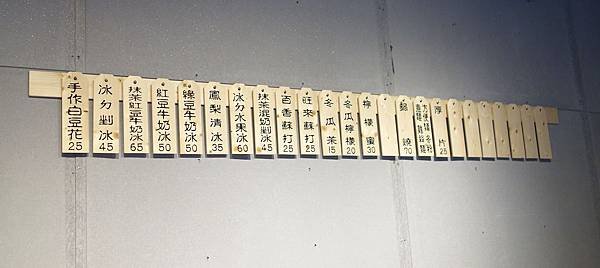 手作白豆花 25
冰ㄉ剉冰 45
抹茶紅豆牛奶冰 65
紅豆牛奶冰 50
綠豆牛奶冰 50
鳳梨清冰 35
冰ㄉ水果冰 60
抹茶混奶剉冰 45
百香蘇打 25
旺來蘇打 25
冬瓜茶 15
冬瓜檸檬 20
檸檬蜜 30
燒 70
厚片 25